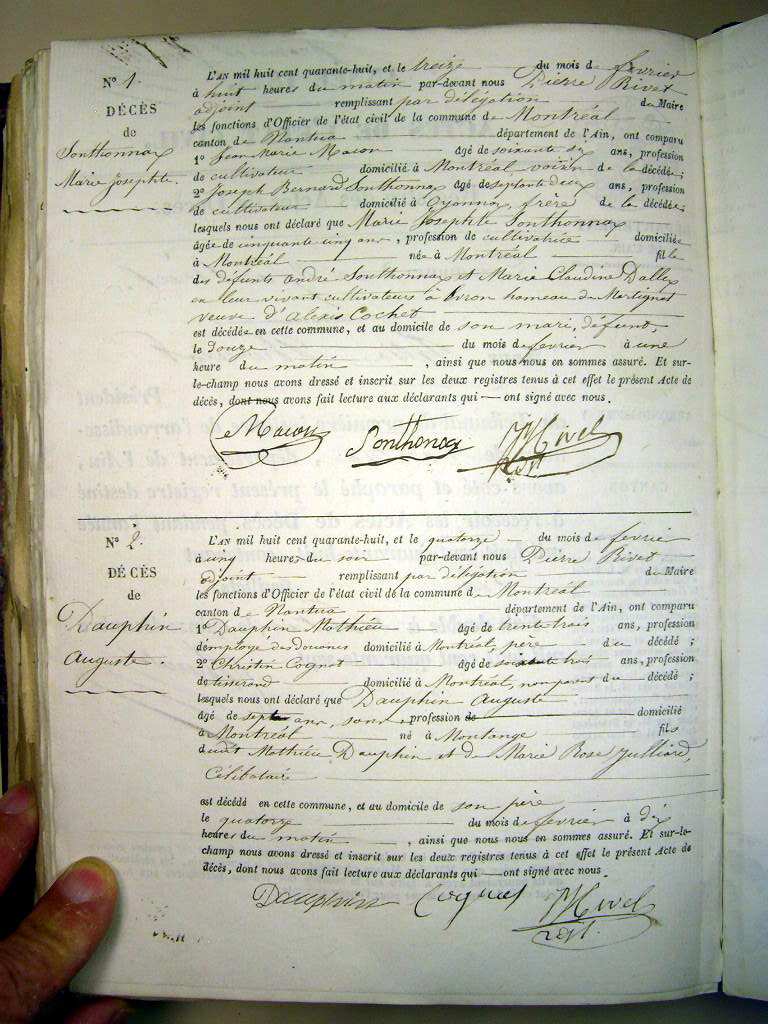 N° 1.
DÉCÈS
de
Sonthonnax
Marie Josephte.
L'AN mil huit cent quarante-huit, et le treize du mois de février
à huit heures du matin par-devant nous Pierre Rivet
adjoint remplissant par délégation du Maire
les fonctions d'Officier de l'état civil de la commune de Montréal
canton de Nantua département de l'Ain, ont comparu
1° Jean Marie Macon âgé de soixante six ans, profession
de cultivateur domicilié à Montréal voisin de la décédée;
2° Joseph Bernard Sonthonnax âgé de septante deux ans, profession
de cultivateur domicilié à Oyonnax, frère de la décédée;
lesquels nous ont déclaré que Marie Josephte Sonthonnax
âgée de cinquante cinq ans, profession de cultivatrice domiciliée
à Montréal née à Montréal fille
des défunts andré Sonthonnax et Marie Claudine Dallex
en leur vivant cultivateurs à hameau de Martignat
veuve d'Alexis Cochet
est décédée en cette commune, et au domicile de son mari, défunt,
le douze du mois de février à une
heure du matin, ainsi que nous nous en sommes assuré. Et sur-
le-champ nous avons dressé et inscrit sur les deux registres tenus à cet effet le présent Acte de
décès, dont nous avons fait lecture aux déclarants qui — ont signé avec nous.
Macon Sonthonax Rivet
adjt
N° 2.
DÉCÈS
de
Dauphin
Auguste.
L'AN mil huit cent quarante-huit, et le quatorze du mois de février
à cinq heures du soir par-devant nous Pierre Rivet
adjoint remplissant par délégation du Maire
les fonctions d'Officier de l'état civil de la commune de Montréal
canton de Nantua département de l'Ain, ont comparu
1° Dauphin Mathieu âgé de trente trois ans, profession
d'employé des douanes domicilié à Montréal, père du décédé;
2° Christin Cognat âgé de soixante trois ans, profession
de tisserand domicilié à Montréal, non parent du décédé;
lesquels nous ont déclaré que Dauphin Auguste
âgé de sept ans, sans profession de domicilié
à Montréal né à Montange fils
dudit Mathieu Dauphin et de Marie Rose Julliard,
Célibataire
est décédé en cette commune, et au domicile de son père
le quatorze du mois de février à dix
heures du matin, ainsi que nous nous en sommes assuré. Et sur-le-
champ nous avons dressé et inscrit sur les deux registres tenus à cet effet le présent Acte de
décès, dont nous avons fait lecture aux déclarants qui — ont signé avec nous.
Dauphin Cognat Rivet
adjt.